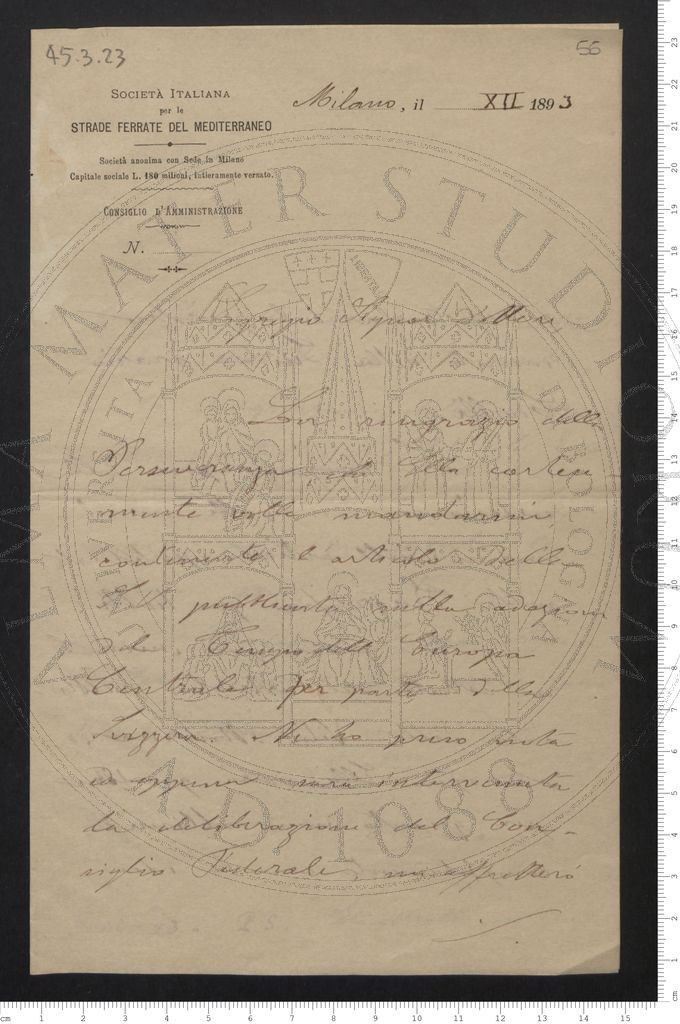 45.3.23
56
SOCIETÀ ITALIANA
per le
STRADE FERRATE DEL MEDITERRANEO
Società anonima con Sede in Milano
Capitale sociale L. 180 milioni, intieramente versato.
CONSIGLIO D'AMMINISTRAZIONE
N.
Milano, il XII 1893
Egregio Signor Dottore
La ringrazio della
Perseveranza ch' Ella cortese
mente volle mandarmi,
contenente l'articolo della
pubblicato sulla adozione
del Tempo dell' Europa
Centrale per parte della
Svizzera. Ne ho preso nota
ed appena sarà intervenuta
la deliberazione del Con-
siglio Federale, mi affretterò
ALMA MATER STUDIORUM
UNIVERSITA DI BOLOGNA
LIBERTAS
A.D. 1088
cm 1 2 3 4 5 6 7 8 9 10 11 12 13 14 15
cm 1 2 3 4 5 6 7 8 9 10 11 12 13 14 15 16 17 18 19 20 21 22 23